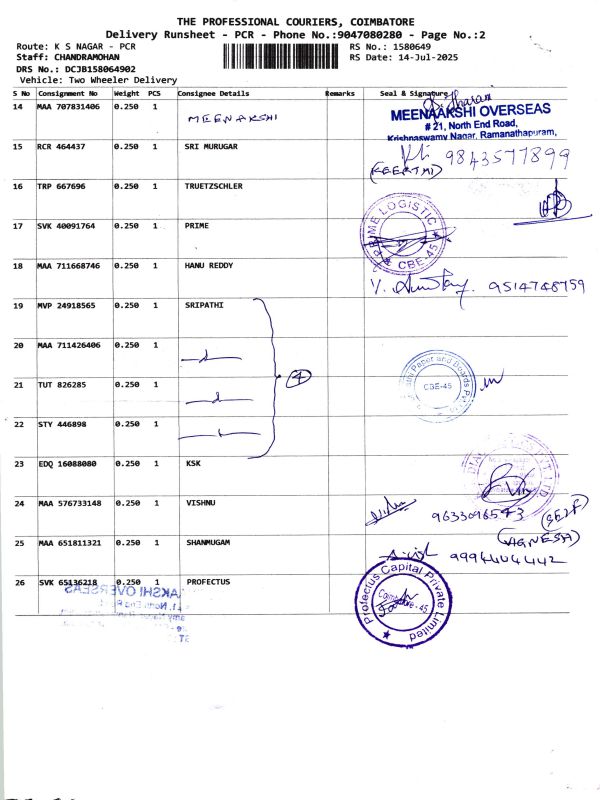 THE PROFESSIONAL COURIERS, COIMBATORE
Delivery Runsheet - PCR - Phone No.:9047080280 - Page No.:2
Route: K S NAGAR - PCR RS No.: 1580649
Staff: CHANDRAMOHAN RS Date: 14-Jul-2025
DRS No.: DCJB158064902
Vehicle: Two Wheeler Delivery
S No Consignment No Weight PCS Consignee Details Remarks Seal & Signature
14 MAA 707831406 0.250 1 MEENAKSHI
MEENAAKSHI OVERSEAS
# 21, North End Road,
Krishnaswamy Nagar, Ramanathapuram,
15 RCR 464437 0.250 1 SRI MURUGAR 9843577899
(KEERTHI)
16 TRP 667696 0.250 1 TRUETZSCHLER
17 SVK 40091764 0.250 1 PRIME PRIME LOGISTIC CBE-45
18 MAA 711668746 0.250 1 HANU REDDY 9514748759
19 MVP 24918565 0.250 1 SRIPATHI
20 MAA 711426406 0.250 1
21 TUT 826285 0.250 1 4 Paper and Boards CBE-45
22 STY 446898 0.250 1
23 EDQ 16088080 0.250 1 KSK
24 MAA 576733148 0.250 1 VISHNU 9633096543 (SELF)
25 MAA 651811321 0.250 1 SHANMUGAM (VAGNESH) 9994404442
26 SVK 65136218 0.250 1 PROFECTUS Profectus Capital Private Limited Coimbatore - 45